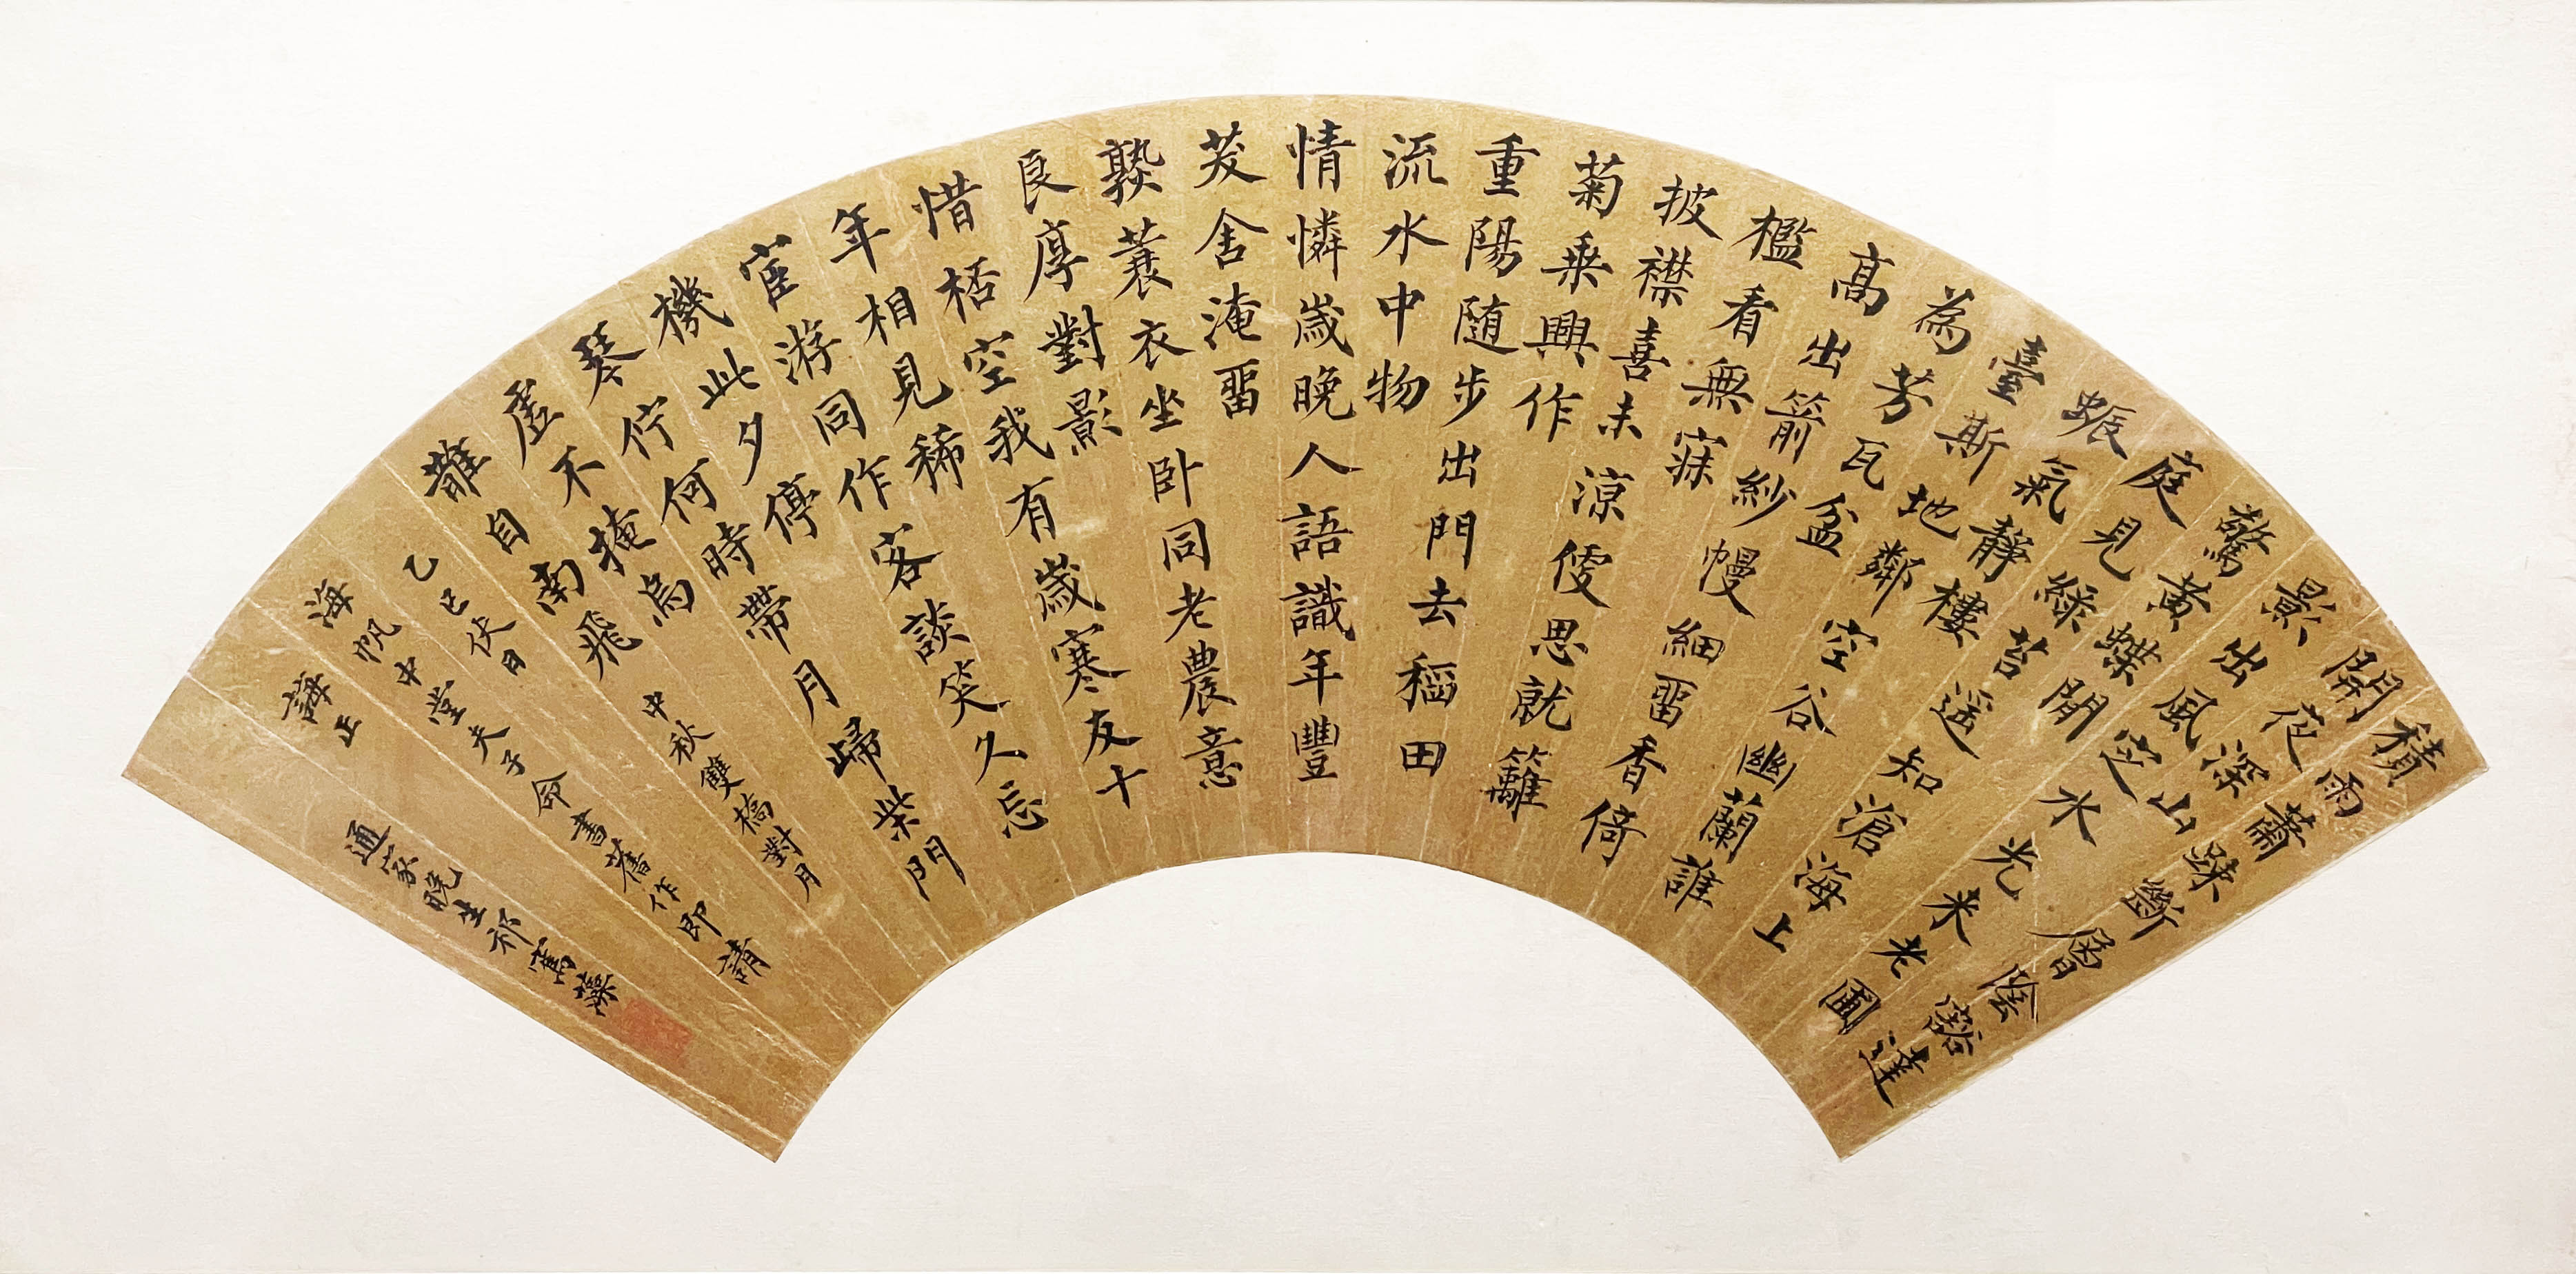 積雨蕭疎斷層陰豁達
開夜深山
影出風定水光来老圃
驚黃蝶閒
庭見綠苔遥知滄海上
蜃氣靜樓
臺斯地鄰空谷幽蘭誰
為芳瓦盆
高出箭紗幔細畱香倚
檻看無寐
披襟喜未涼倐思就籬
菊乘興作
重陽随步出門去稻田
流水中物
情憐歲晚人語識年豐
茇舍淹畱
熟蓑衣坐卧同老農意
良厚對影
惜桮空我有歲寒友十
年相見稀
宦游同作客談笑久忘
機此夕停
琴佇何時帶月歸柴門
虛不掩烏
䧿自南飛 中秋雙橋對月
乙巳伏日
海帆中堂夫子命書舊作即請
誨正
通家晚生祁寯藻